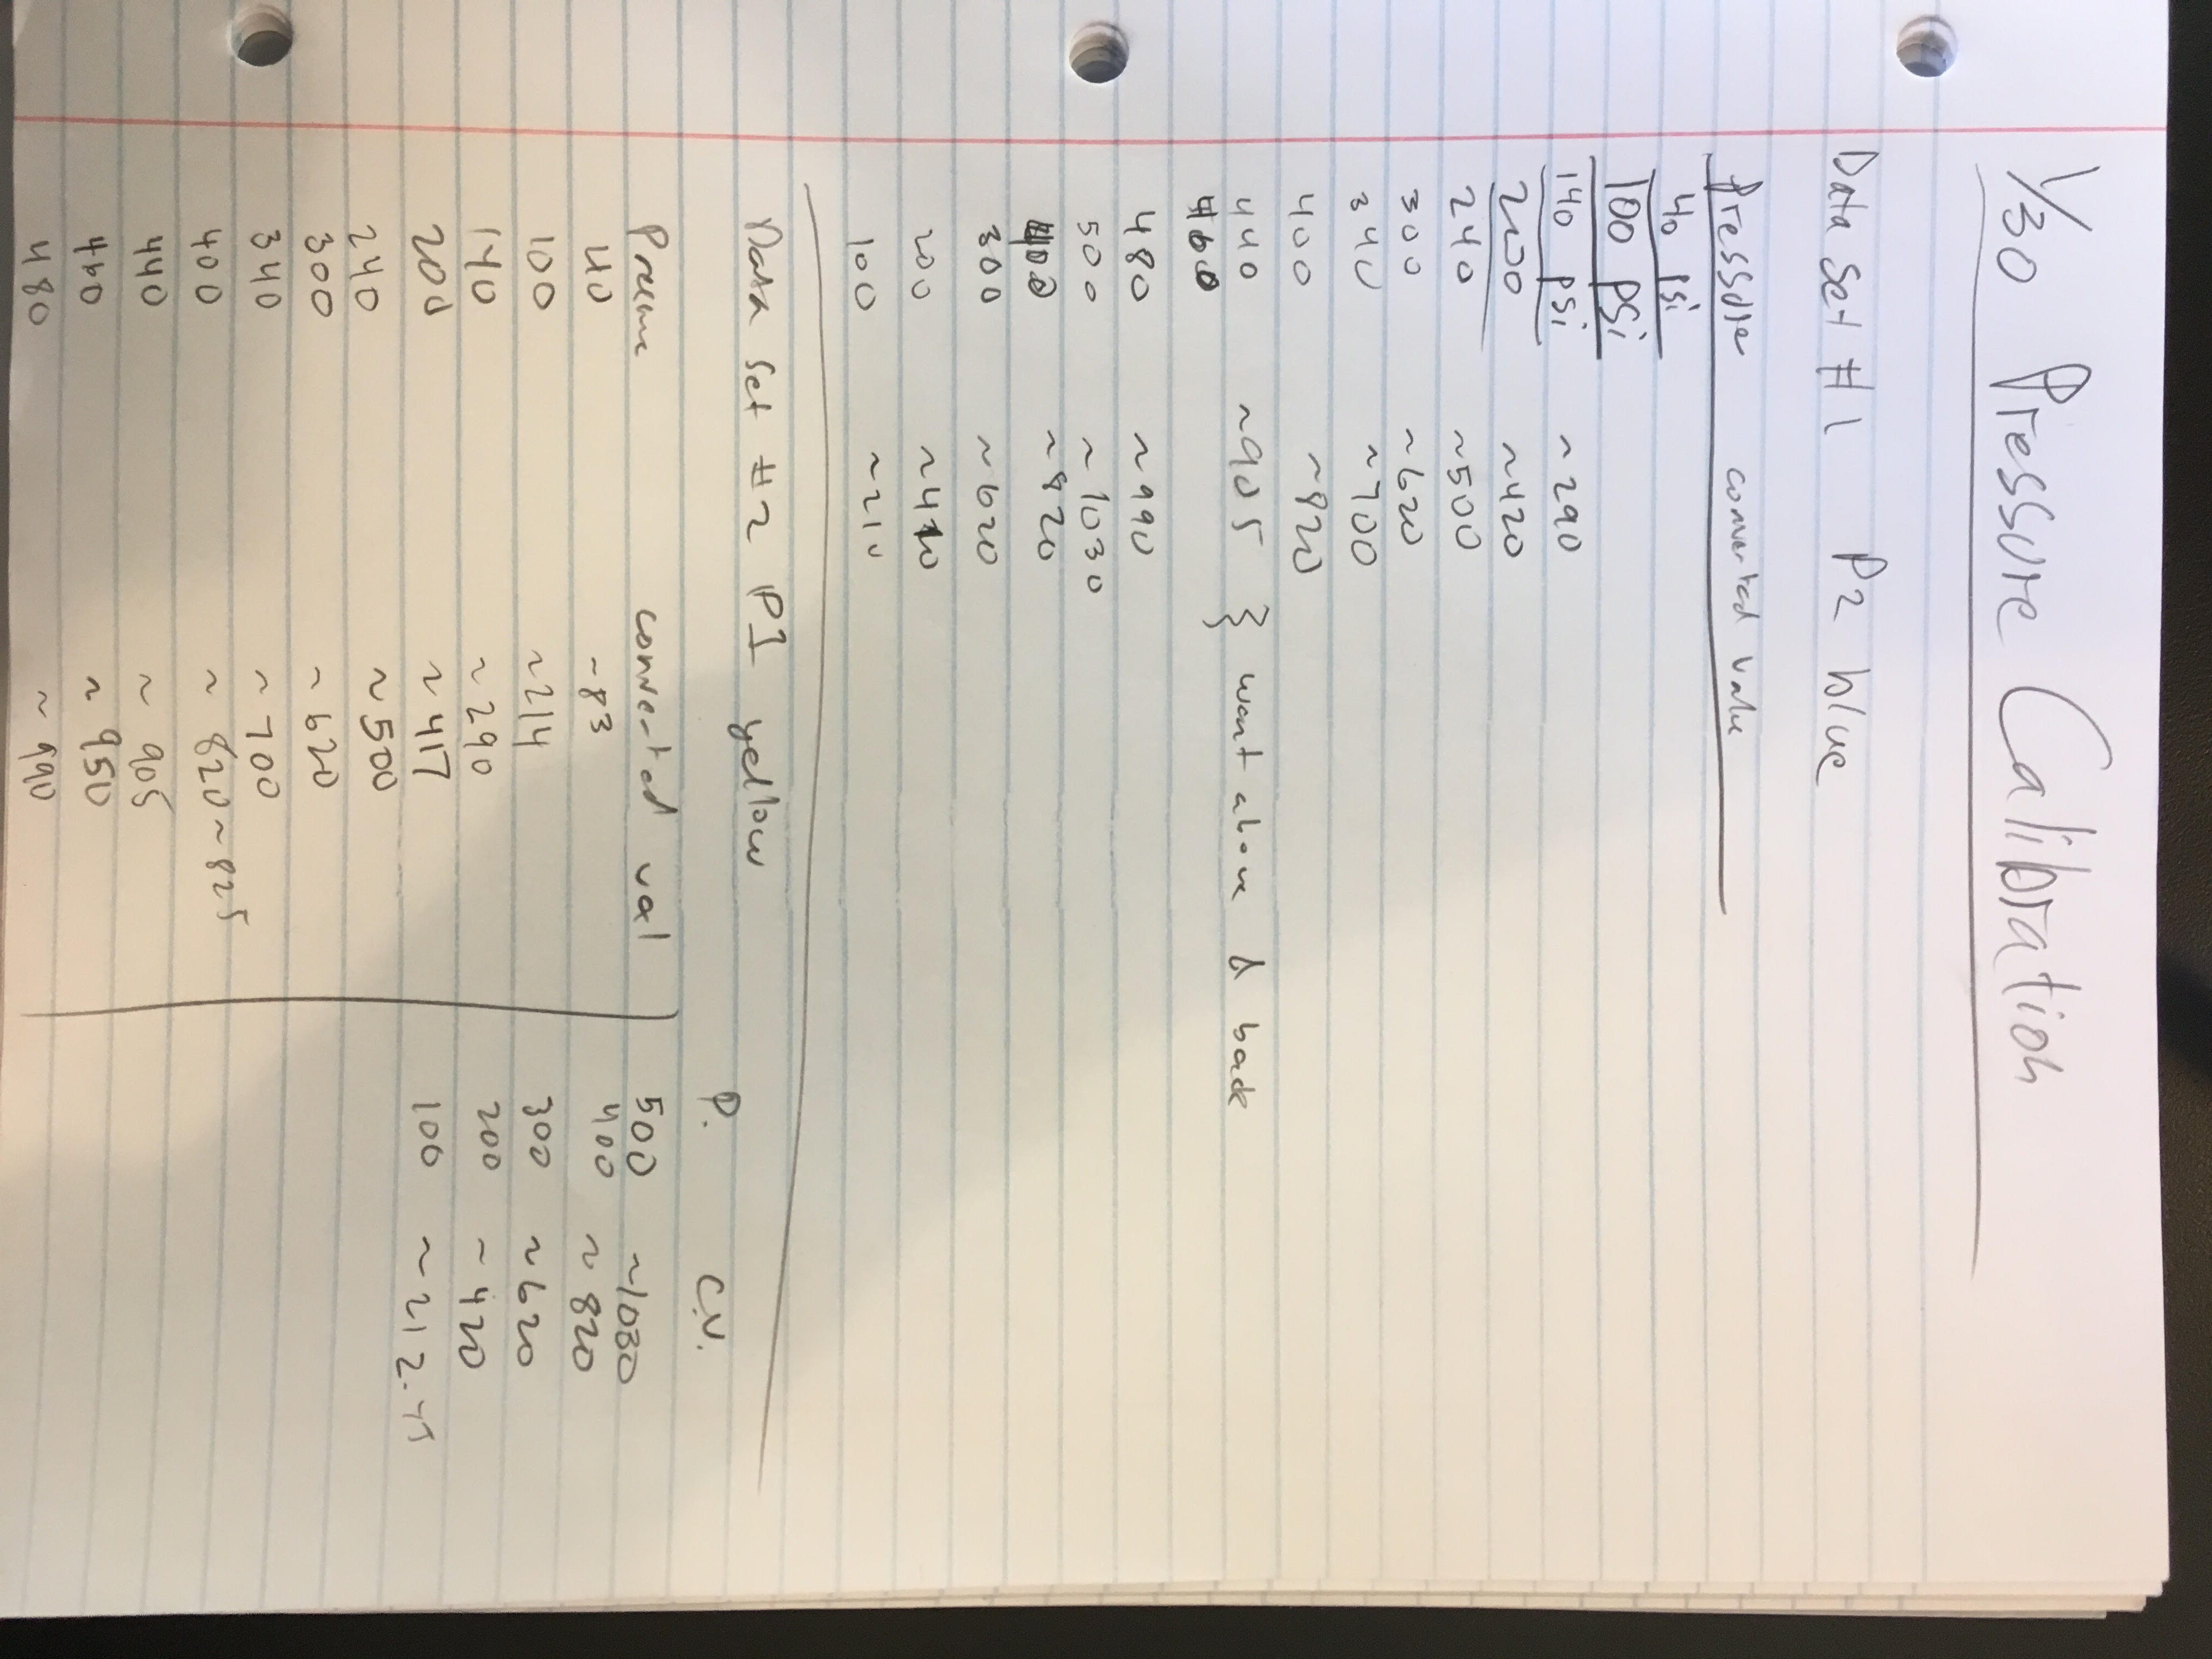 1/30 Pressure Calibration
Data Set #1 P2 blue
Pressure converted value
40 psi
100 psi
140 psi ~290
200 ~420
240 ~500
300 ~620
340 ~700
400 ~820
440 ~905 } went above & back
460
480 ~990
500 ~1030
400 ~820
300 ~620
200 ~420
100 ~210
Data Set #2 P1 yellow
Pressure converted val
40 ~83
100 ~214
140 ~290
200 ~417
240 ~500
300 ~620
340 ~700
400 ~820~825
440 ~905
460 ~950
480 ~990
P. C.V.
500 ~1030
400 ~820
300 ~620
200 ~420
100 ~212.45